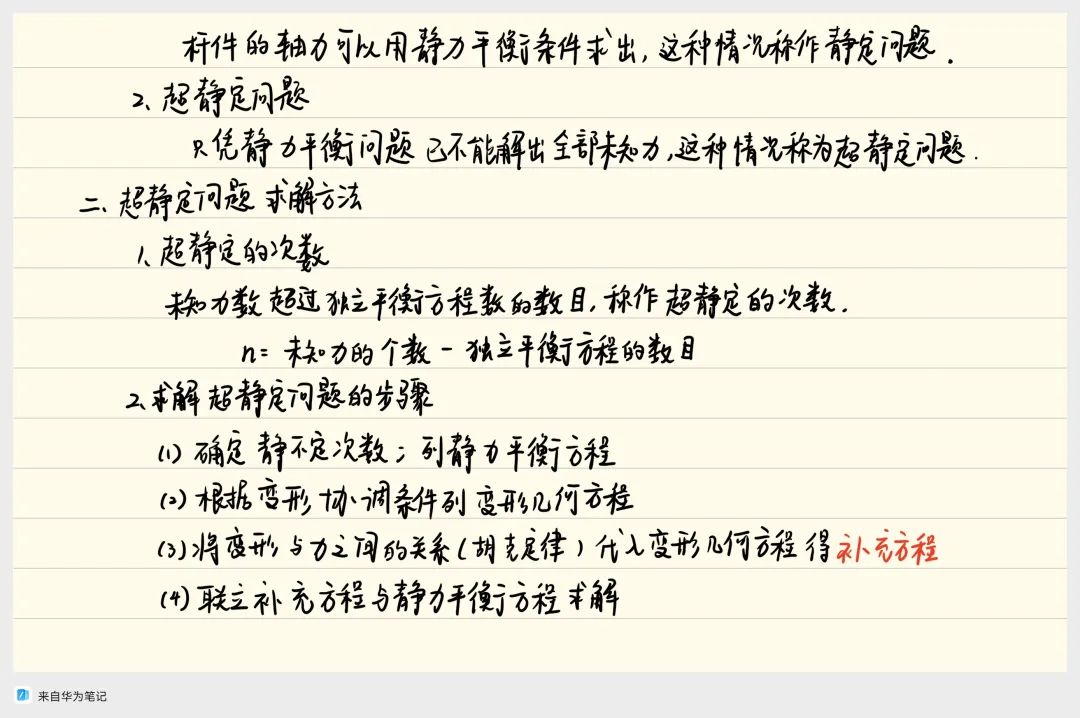 杆件的轴力可以用静力平衡条件求出,这种情况称作静定问题.
2、超静定问题
只凭静力平衡问题已不能解出全部未知力,这种情况称为超静定问题.
二、超静定问题求解方法
1、超静定的次数
未知力数超过独立平衡方程数的数目,称作超静定的次数.
n= 未知力的个数 - 独立平衡方程的数目
2、求解超静定问题的步骤
(1) 确定静不定次数；列静力平衡方程
(2) 根据变形协调条件列变形几何方程
(3) 将变形与力之间的关系(胡克定律)代入变形几何方程得补充方程
(4) 联立补充方程与静力平衡方程求解
来自华为笔记